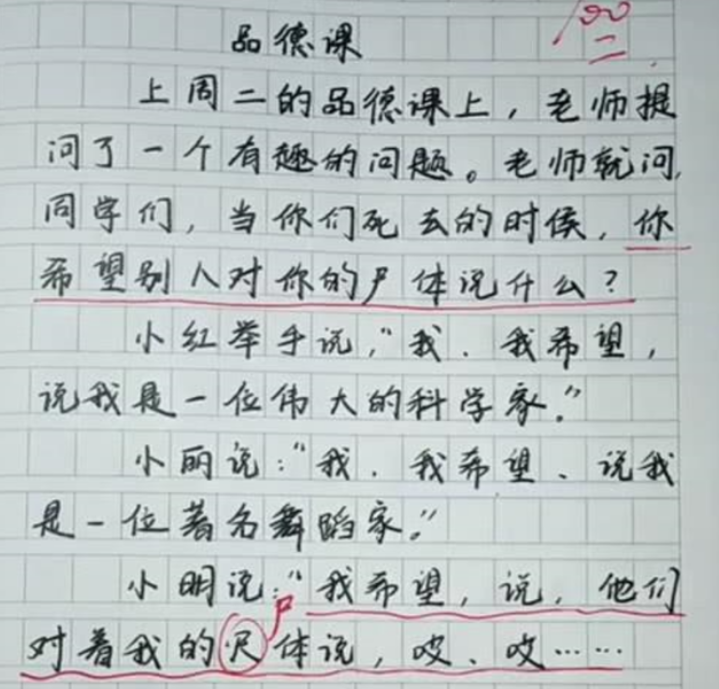 100
品德课
上周二的品德课上，老师提
问了一个有趣的问题。老师就问，
同学们，当你们死去的时候，你
希望别人对你的尸体说什么？
小红举手说，“我．我希望，
说我是一位伟大的科学家。”
小丽说：“我．我希望、说我
是一位著名舞蹈家。”
小明说：“我希望，说，他们
尸
对着我的尺体说，哎、哎……